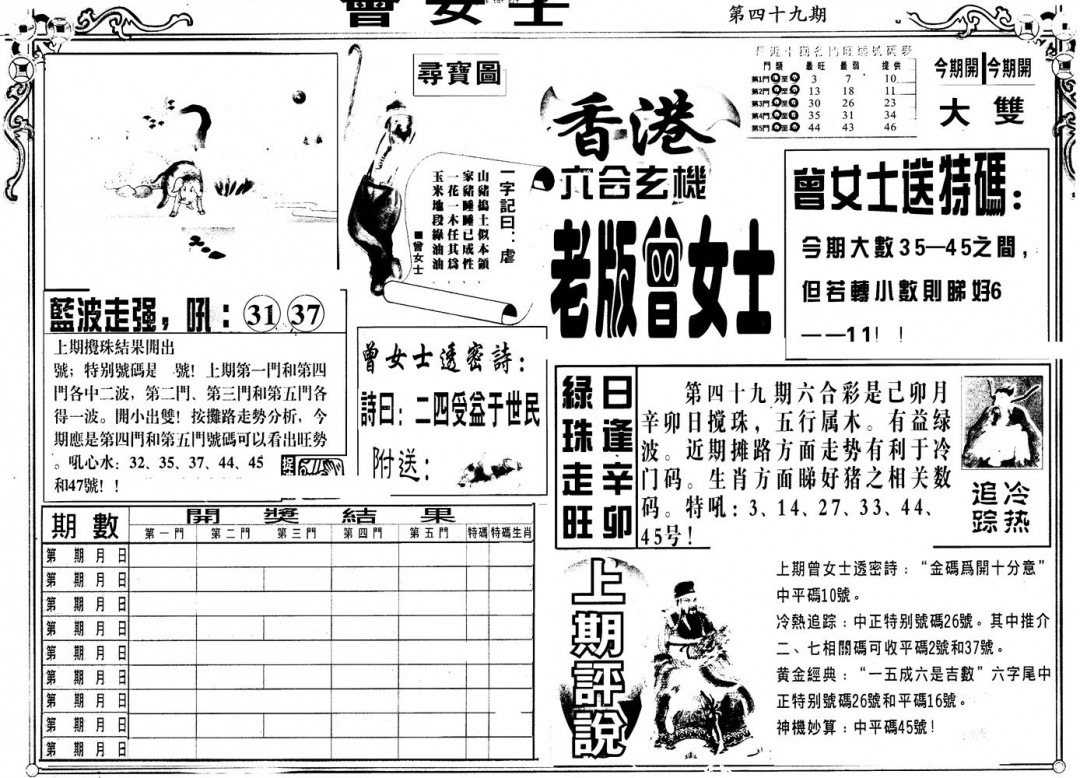 曾女士
第四十九期
尋寶圖
一字記曰：虐
山豬搗土似本領，
家豬睡睡已成性，
一花一木任其爲，
玉米地段綠油油。
■曾女士
香港
六合玄機
老版曾女士
門類 最旺 最弱 提供
第1門 至 3 7 10
第2門 至 13 18 11
第3門 至 30 26 23
第4門 至 35 31 34
第5門 至 44 43 46
今期開 今期開
大 雙
曾女士送特碼：
今期大數35—45之間，
但若轉小數則睇好6
——11！！
藍波走强，吼：31 37
上期攪珠結果開出
號；特別號碼是 號！上期第一門和第四
門各中二波，第二門、第三門和第五門各
得一波。開小出雙！按攤路走勢分析，今
期應是第四門和第五門號碼可以看出旺勢
。吼心水：32、35、37、44、45
和47號！！
曾女士透密詩：
詩曰：二四受益于世民
附送：
綠珠走旺
日逢辛卯
第四十九期六合彩是己卯月
辛卯日搅珠，五行属木。有益绿
波。近期摊路方面走势有利于冷
门码。生肖方面睇好猪之相关数
码。特吼：3、14、27、33、44、
45号！
冷热
追踪
期數 開獎結果
第一門 第二門 第三門 第四門 第五門 特碼 特碼生肖
第 期 月 日
第 期 月 日
第 期 月 日
第 期 月 日
第 期 月 日
第 期 月 日
第 期 月 日
第 期 月 日
第 期 月 日
上期評說
上期曾女士透密詩：“金碼爲開十分意”
中平碼10號。
冷熱追踪：中正特别號碼26號。其中推介
二、七相關碼可收平碼2號和37號。
黄金經典：“一五成六是吉數”六字尾中
正特别號碼26號和平碼16號。
神機妙算：中平碼45號！